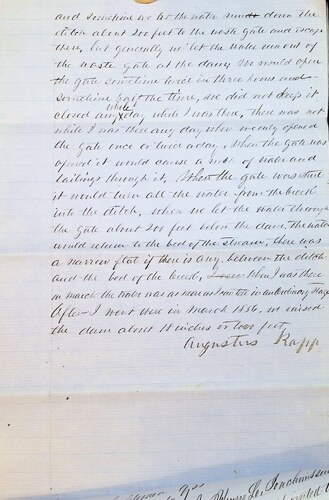 and sometime we let the water down the
ditch about 200 feet to the waste gate and escape
there, but generally we let the water run out of
the waste gate at the dam, We would open
the gate sometime twice in three hours and
sometime half the time, we did not keep it
closed any whole day while I was there, there was not
while I was there any day when we only opened
the gate once or twice a day. When the gate was
opened it would cause a rush of water and
tailings through it, When the gate was shut
it would turn all the water from the creek
into the ditch, when we let the water through
the gate about 200 feet below the dam, the water
would return to the bed of the stream, there was
a narrow flat if there is any between the ditch
and the bed of the creek, When I was there
in march the water was as near as I can tell in an ordinary stage
After I went there in March 1856, we raised
the dam about 18 inches or two feet
Augustus Rapp